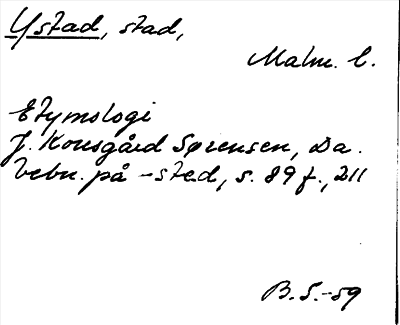 Ystad, stad,
Malm. l.
Etymologi
J. Kousgård Sørensen, Da.
bebn. på -sted, s. 89 f., 211
B. S. -59